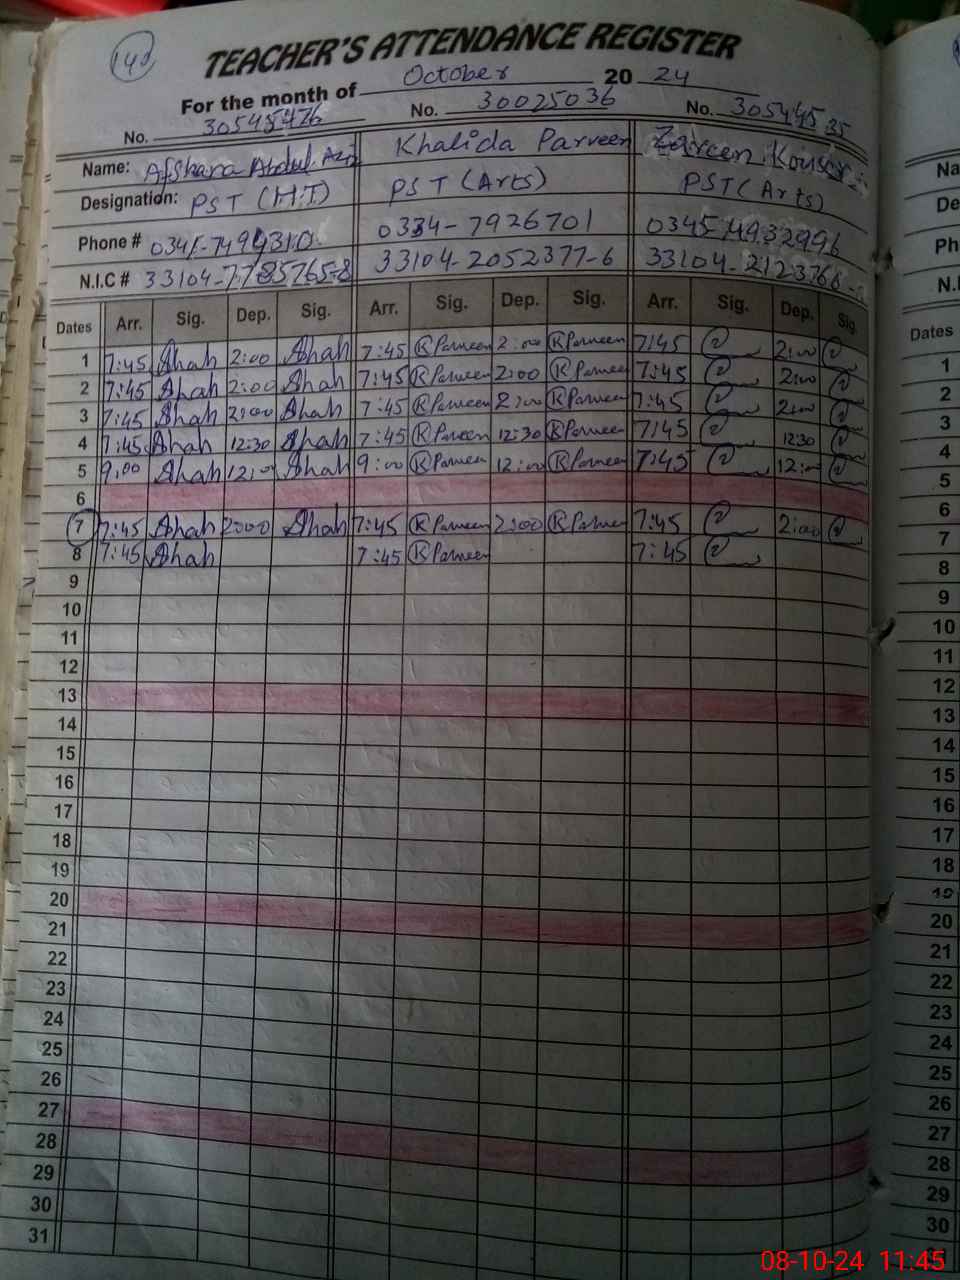 140
TEACHER'S ATTENDANCE REGISTER
For the month of October 20 24
No. 30545426 No. 30025036 No. 30544535
Name: Afshana Abdul Aziz Khalida Parveen Zareen Kousar
Designation: PST (H.T) PST (Arts) PST (Arts)
Phone # 0334-7926701
N.I.C # 33104-7785765-8 33104-2052377-6 33104-2123768
Dates Arr. Sig. Dep. Sig. Arr. Sig. Dep. Sig. Arr. Sig. Dep. Sig.
1 7:45 Shah 2:00 Shah 7:45 K Parveen 2:00 K Parveen 7:45 2:00
2 7:45 Shah 2:00 Shah 7:45 K Parveen 2:00 K Parveen 7:45 2:00
3 7:45 Shah 2:00 Shah 7:45 K Parveen 2:00 K Parveen 7:45 2:00
4 7:45 Shah 12:30 Shah 7:45 K Parveen 12:30 K Parveen 7:45 12:30
5 9:00 Shah 12:00 Shah 9:00 K Parveen 12:00 K Parveen 7:45 12:00
6
7 7:45 Shah 2:00 Shah 7:45 K Parveen 2:00 K Parveen 7:45 2:00
8 7:45 Shah 7:45 K Parveen 7:45
9
10
11
12
13
14
15
16
17
18
19
20
21
22
23
24
25
26
27
28
29
30
31
Na
De
Ph
N.I
Dates
1
2
3
4
5
6
7
8
9
10
11
12
13
14
15
16
17
18
19
20
21
22
23
24
25
26
27
28
29
30
08-10-24 11:45